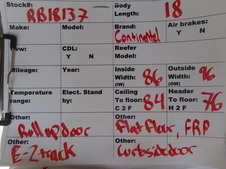 Stock#: RB18137 Body Length: 18
Make: Model: Brand: Continental Air brakes: Y N
CDL: Y N Reefer Model:
Mileage: Year: Inside Width: (IW) 86 Outside Width: (OW) 96
Temperature range: Elect. Stand by: Ceiling To floor: C 2 F 84 Header To floor: H 2 F 76
Other: Roll up door Other: Flat floor, FRP
Other: E-Z track Other: Curbside door